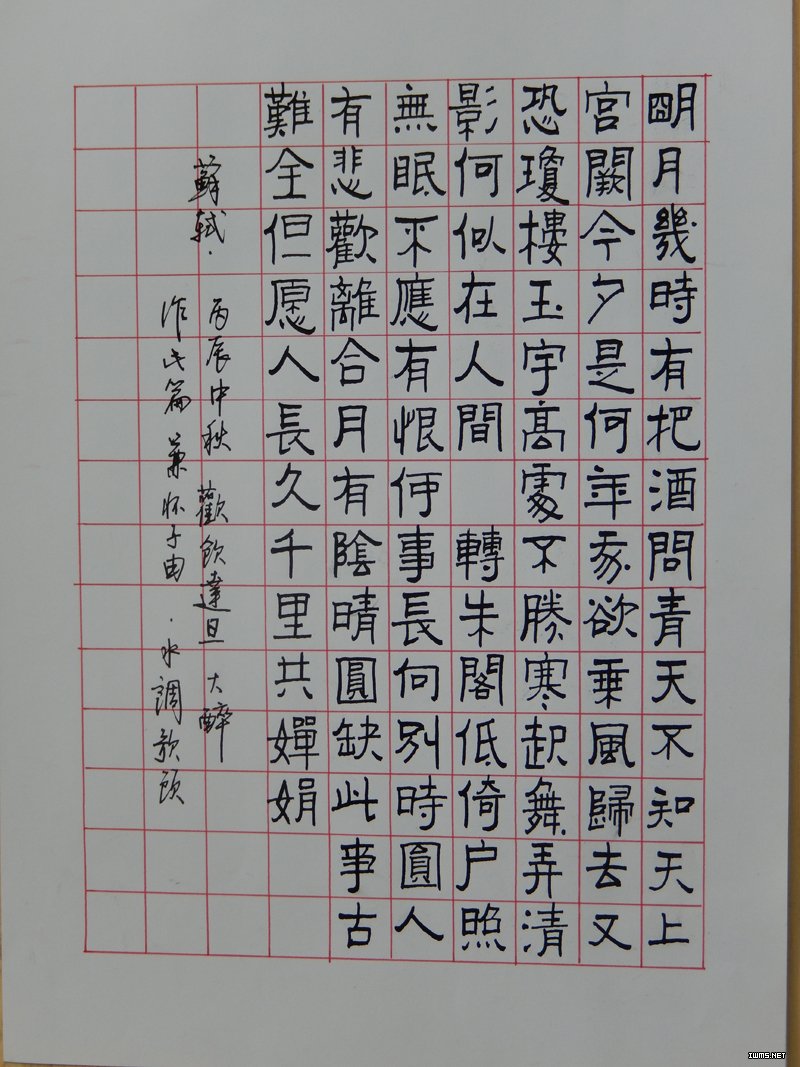 明月幾時有把酒問青天不知天上
宮闕今夕是何年我欲乗風歸去又
恐瓊樓玉宇高處不勝寒起舞弄清
影何似在人間 轉朱閣低倚户照
無眠不應有恨何事長向别時圓人
有悲歡離合月有陰晴圓缺此事古
難全但愿人長久千里共嬋娟
蘇軾·丙辰中秋 歡飲達旦 大醉
作此篇 兼怀子由·水調歌頭
IWMS.NET